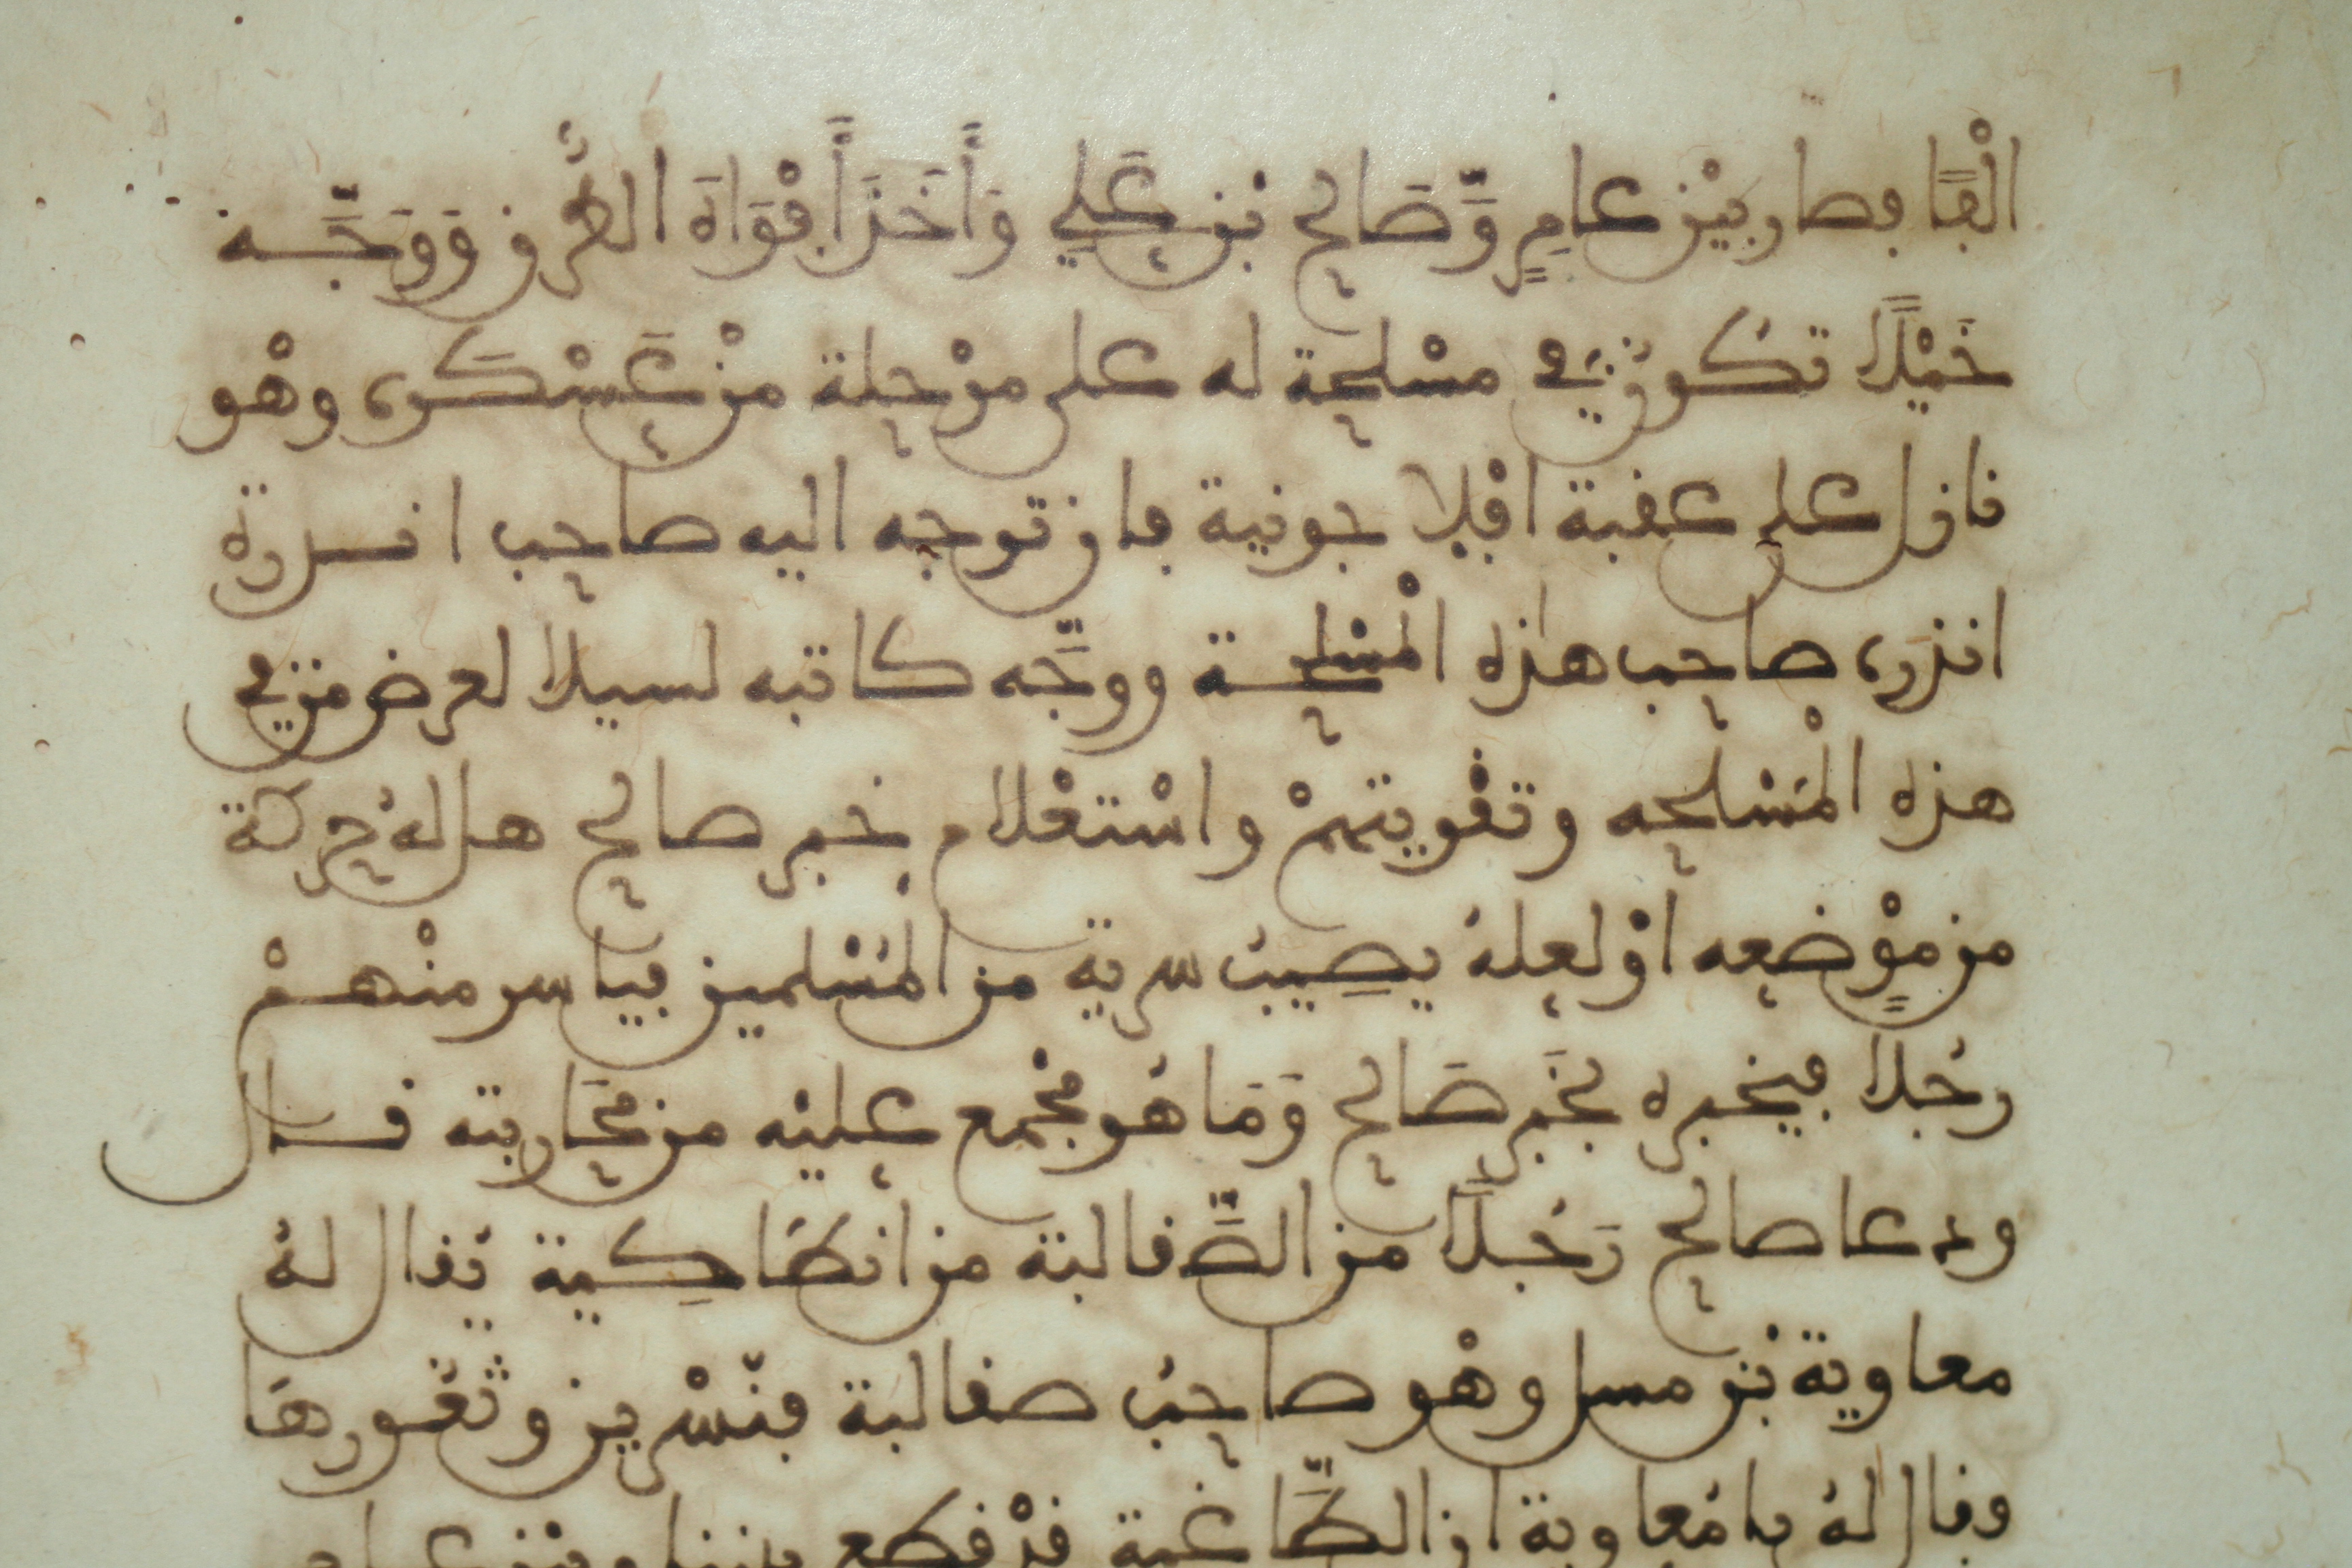 الْفًا فصار بيْن عامِرٍ وَّصَالح بْن عَلي وَأَخَذَ أَفْوَاهَ الطُّرق وَوَجَّه
خَيْلًا تكُونُ في مسْلحة له على مرْحلة منْ عَسْكره وهْو
نازل على عقبة اقْبلا جونية فان توجه اليه صاحب
انذره صاحب هاذه الْمسْلحة ووجَّه كاتبه لسيلا لعرض من في
هذه الْمَسْلحه وتقْويتهمْ واسْتعْلام خبر صالح هل لهُ حركة
من موْضعه اوْ لعلهُ يصِيبُ سرية من المُسْلمين فياسر منْهمْ
رجُلا فيخبره بخَبر صَالح وَمَا هُو مجْمع عليْه من محَاربته قال
ودعا صالح رَجُلًا من الصَّقالبة من انطَاكِية يُقال لهُ
معاوية بْن مسل وهْو صاحبُ صقالبة قنّسْرين وثغُورهَا
وقال لهُ يا مُعاوية ان الطَّاغية قدْ قطع بيننا وبيْن